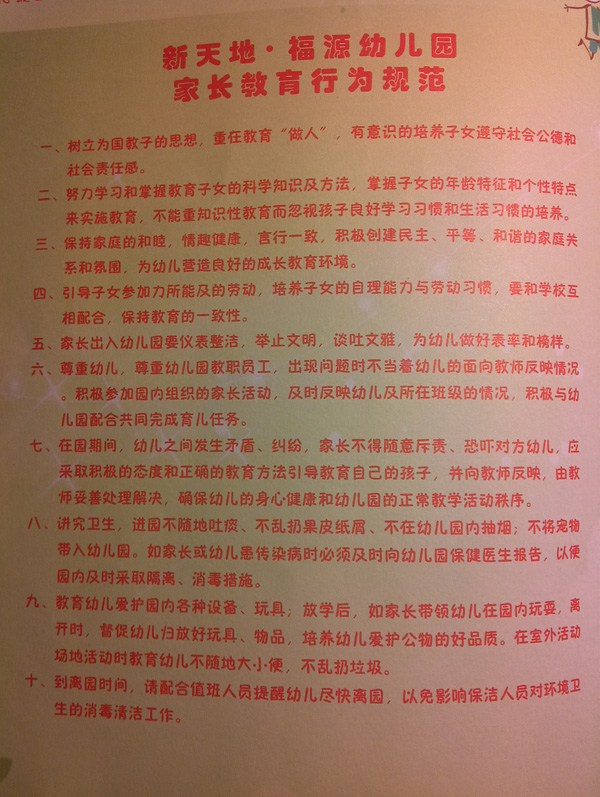 新天地·福源幼儿园
家长教育行为规范
一、树立为国教子的思想，重在教育“做人”，有意识的培养子女遵守社会公德和
社会责任感。
二、努力学习和掌握教育子女的科学知识及方法，掌握子女的年龄特征和个性特点
来实施教育，不能重知识性教育而忽视孩子良好学习习惯和生活习惯的培养。
三、保持家庭的和睦，情趣健康，言行一致，积极创建民主、平等、和谐的家庭关
系和氛围，为幼儿营造良好的成长教育环境。
四、引导子女参加力所能及的劳动，培养子女的自理能力与劳动习惯，要和学校互
相配合，保持教育的一致性。
五、家长出入幼儿园要仪表整洁，举止文明，谈吐文雅，为幼儿做好表率和榜样。
六、尊重幼儿，尊重幼儿园教职员工，出现问题时不当着幼儿的面向教师反映情况
。积极参加园内组织的家长活动，及时反映幼儿及所在班级的情况，积极与幼
儿园配合共同完成育儿任务。
七、在园期间，幼儿之间发生矛盾、纠纷，家长不得随意斥责、恐吓对方幼儿，应
采取积极的态度和正确的教育方法引导教育自己的孩子，并向教师反映，由教
师妥善处理解决，确保幼儿的身心健康和幼儿园的正常教学活动秩序。
八、讲究卫生，进园不随地吐痰、不乱扔果皮纸屑、不在幼儿园内抽烟；不将宠物
带入幼儿园。如家长或幼儿患传染病时必须及时向幼儿园保健医生报告，以便
园内及时采取隔离、消毒措施。
九、教育幼儿爱护园内各种设备、玩具；放学后，如家长带领幼儿在园内玩耍，离
开时，督促幼儿归放好玩具、物品，培养幼儿爱护公物的好品质。在室外活动
场地活动时教育幼儿不随地大小便，不乱扔垃圾。
十、到离园时间，请配合值班人员提醒幼儿尽快离园，以免影响保洁人员对环境卫
生的消毒清洁工作。